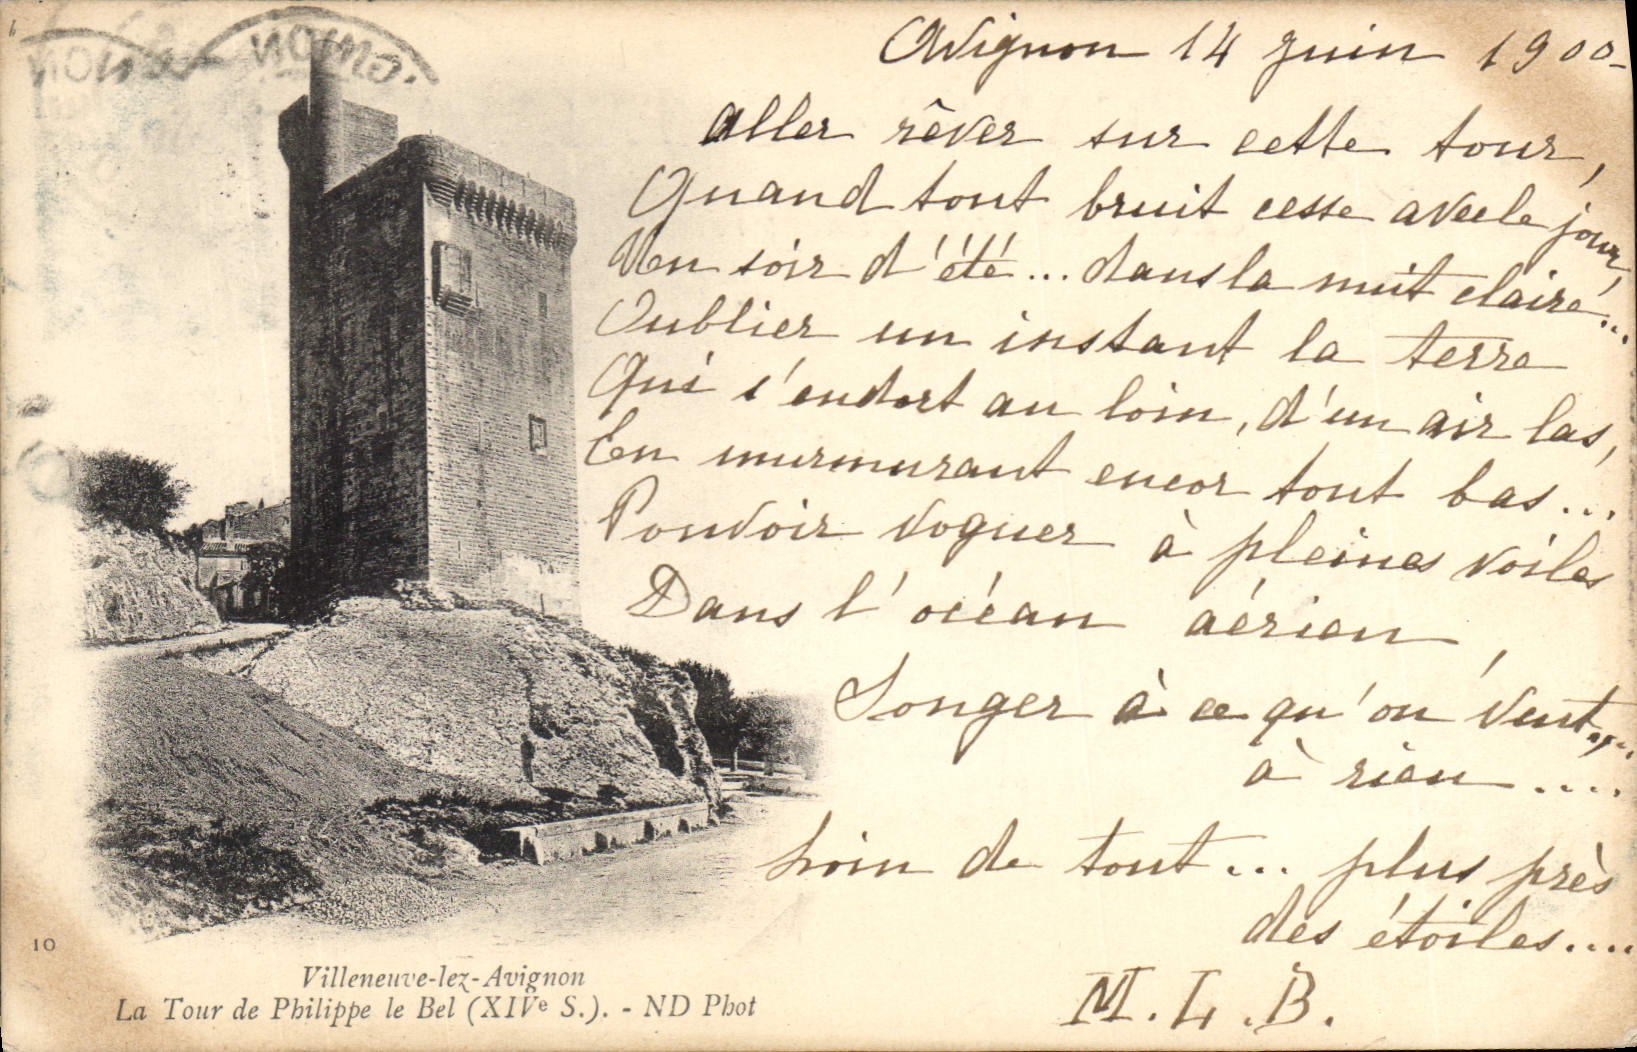 Avignon 14 juin 1900-
Aller rêver sur cette tour,
Quand tout bruit cesse avec le jour,
Un soir d'été... dans la nuit claire...
Oublier un instant la terre
Qui s'endort au loin, d'un air las,
En murmurant encor tout bas...
Pouvoir voguer à pleines voiles
Dans l'océan aérien,
Songer à ce qu'on veut.....
à rien....
Loin de tout... plus près
des étoiles....
M. L. B.
10
Villeneuve-lez-Avignon
La Tour de Philippe le Bel (XIVe S.). - ND Phot